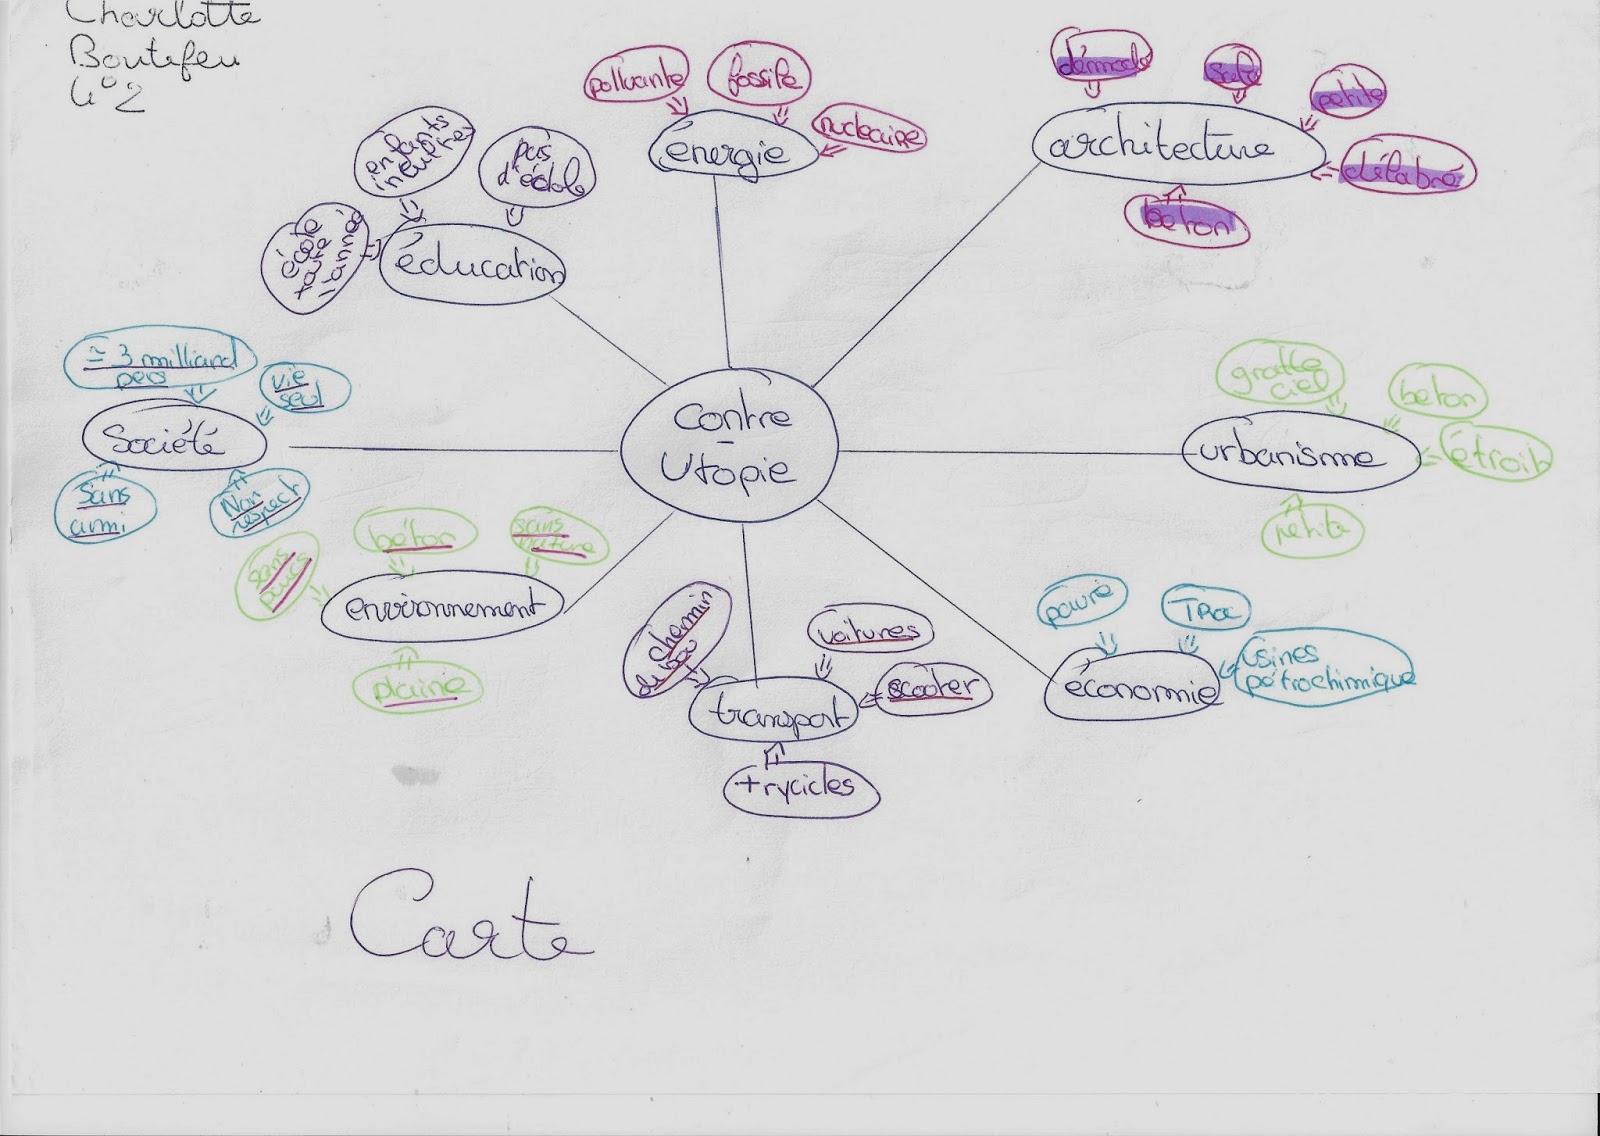 Charlotte
Boutefeu
4°2
polluante
fossile
nucleaire
énergie
démodé
sale
petite
délabré
beton
architecture
enfants
pas
d'école
école
toute
l'année
éducation
≃ 3 milliard
pers
vie
seul
Société
Sans
ami
Non
respect
Contre
-
Utopie
gratte
ciel
beton
étroit
petite
urbanisme
sans
parcs
béton
sans
nature
environnement
plaine
chemin
voitures
scooter
transport
trycicles
pauvre
Troc
usines
pétrochimique
économie
Carte